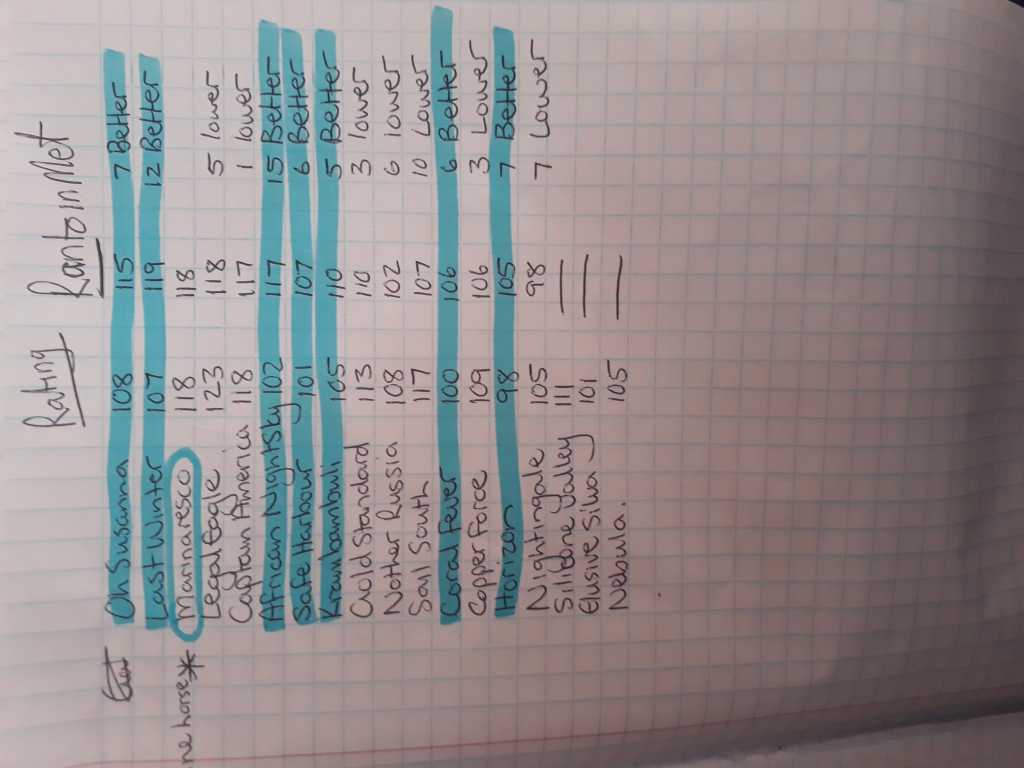 Rating Ranto in Met
Oh Susanna 108 115 7 Better
Last Winter 107 119 12 Better
ne horse * Marinaresco 118 118
Legal Eagle 123 118 5 lower
Captain America 118 117 1 lower
African Night Sky 102 117 15 Better
Safe Harbour 101 107 6 Better
Krambambuli 105 110 5 Better
Ovold Standard 113 110 3 lower
Nother Russia 108 102 6 lower
Sail South 117 107 10 Lower
Coral Fever 100 106 6 Better
Copper Force 109 106 3 Lower
Horizon 98 105 7 Better
Nightingale 105 98 7 Lower
Silicone Valley 111 —
Elusive Silva 101 —
Nebula. 105 —